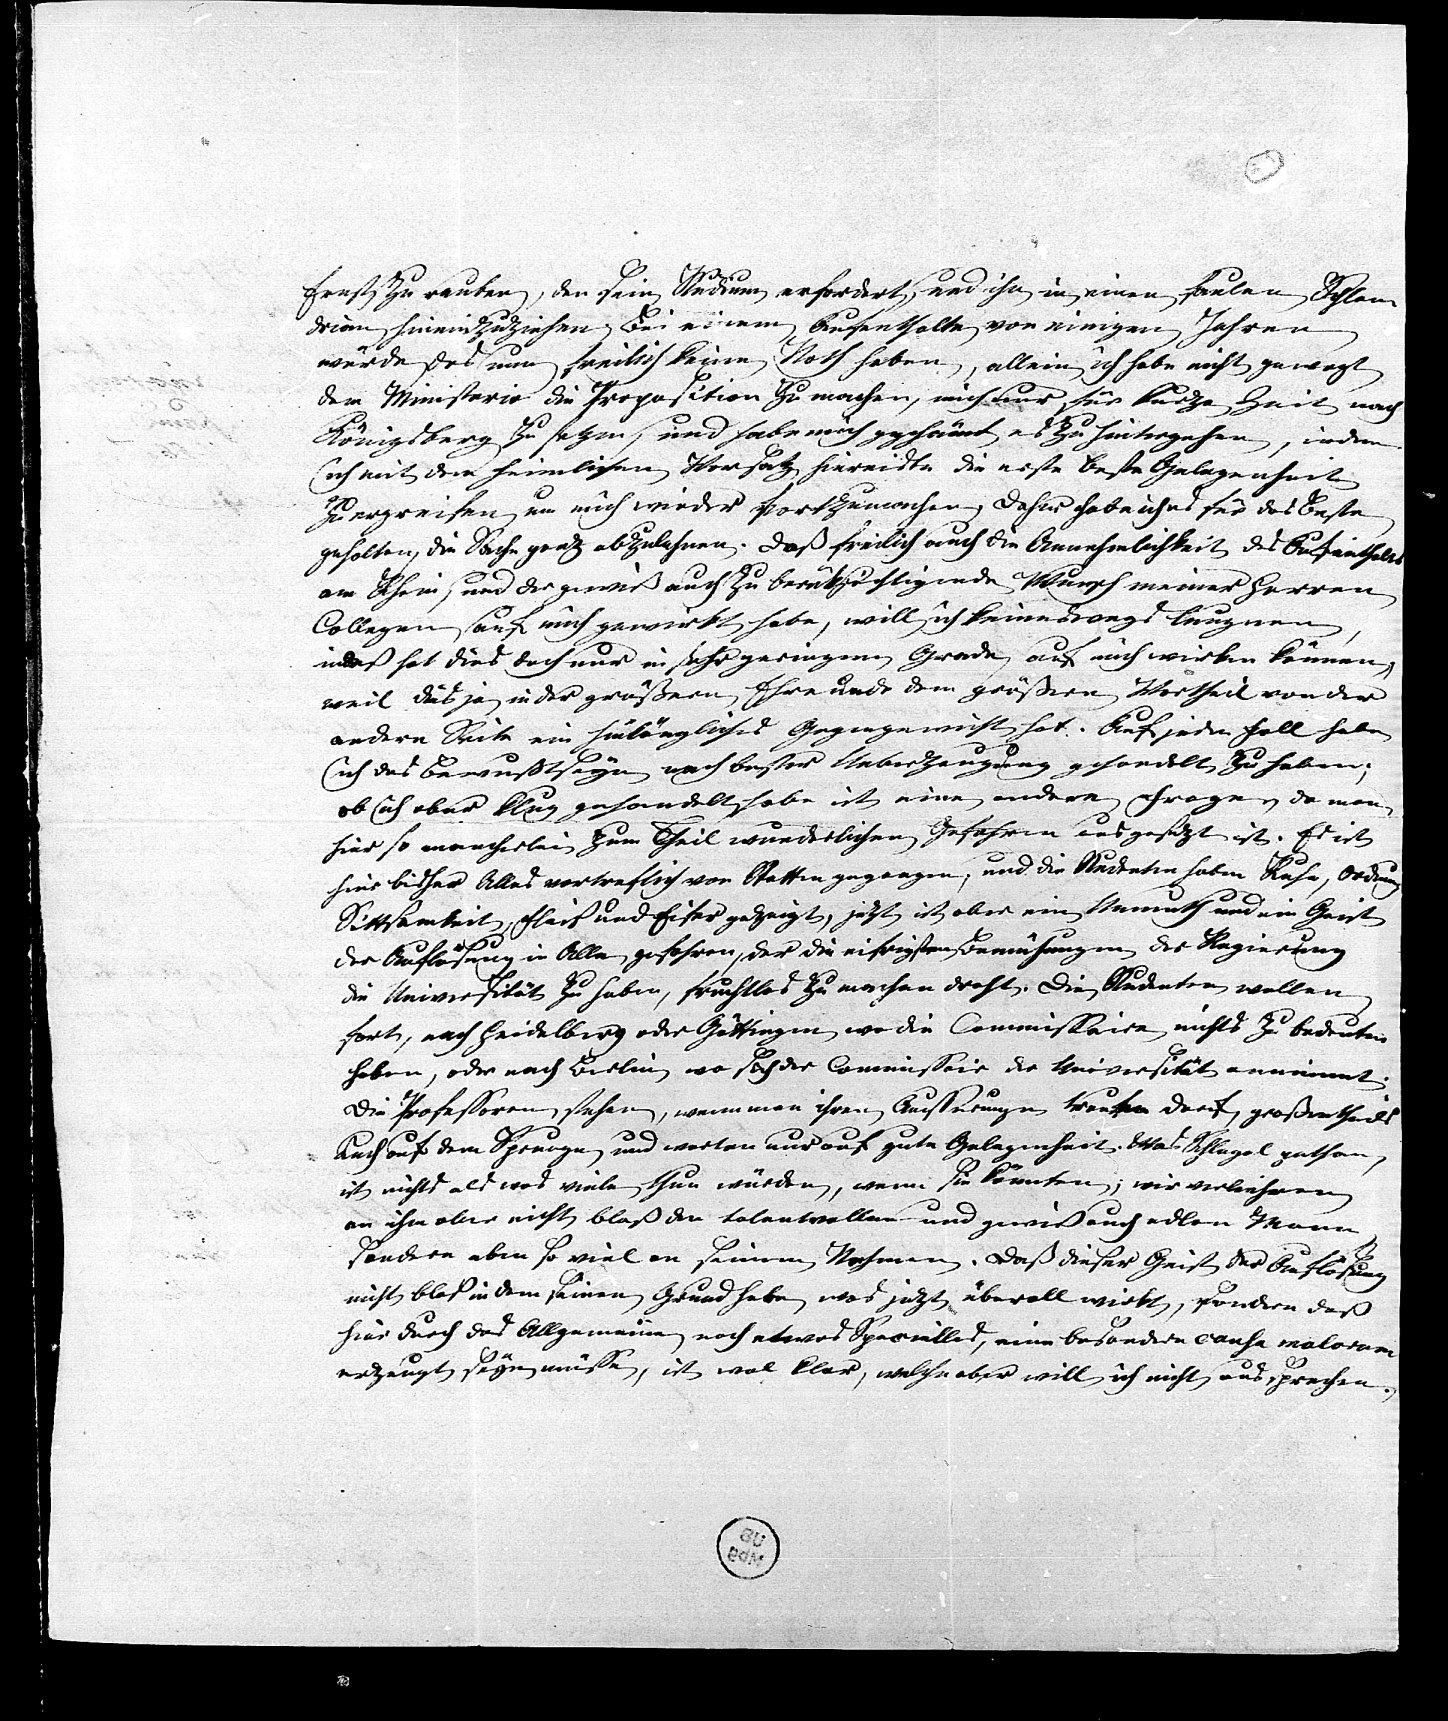 Ernst zu rauben, den sein Studium erfordert, und ihn in einen faulen Schlen-
drian hineinzuziehen. Bei einem Aufenthalte von einigen Jahren
würde das nun freilich keine Noth haben, allein ich habe nicht gewagt
dem Ministerio die Proposition zu machen, mich nur für kurze Zeit nach
Königsberg zu setzen, und habe mich geschämt es zu hintergehen, indem
ich mit dem heimlichen Vorsatz hinreiste die erste beste Gelegenheit
zu ergreifen um mich wieder fortzumachen. Daher habe ich es für das Beste
gehalten, die Sache ganz abzulehnen. Daß freilich auch die Annehmlichkeit des Aufenthaltes
am Rhein, und der gewiß auch zu berücksichtigende Wunsch meiner Herren
Collegen auf mich gewirkt habe, will ich keineswegs leugnen,
indeß hat dies doch nur in sehr geringem Grade auf mich wirken können,
weil dies ja in der größern Ehre und dem größern Vortheil von der
andern Seite ein hinlängliches Gegengewicht hat. Auf jeden Fall habe
ich das Bewußtseyn nach bester Ueberzeugung gehandelt zu haben;
ob ich aber klug gehandelt habe ist eine andere Frage, da man
hier so mancherlei zum Theil wunderlichen Gefahren ausgesetzt ist. Es ist
hier bisher Alles vortreflich von Statten gegangen, und die Studenten haben Ruhe, Ordnung
Sittsamkeit, Fleiß und Eifer gezeigt, jetzt ist aber ein Unmuth und ein Geist
der Auflösung in Alle gefahren, der die eifrigsten Bemühungen der Regierung
die Universität zu heben, fruchtlos zu machen droht. Die Studenten wollen
fort, nach Heidelberg oder Göttingen wo die Commissaire nichts zu bedeuten
haben, oder nach Berlin, wo sich der Commissair der Universität annimmt.
Die Professoren stehen, wenn man ihren Äusserungen trauen darf, großentheils
auch auf dem Sprunge, und warten nur auf gute Gelegenheit. Was Schlegel gethan,
ist nichts als was viele thun würden, wenn sie könnten; wir verliehren
an ihm aber nicht bloß den talentvollen und gewiß auch edlen Mann
sondern eben so viel an seinem Nahmen. Daß dieser Geist der Auflösung
nicht bloß in dem seinen Grund habe, was jetzt überall wirkt, sondern daß
hier durch das Allgemeine noch etwas Specielles, eine besondere causa malorum
erzeugt seyn müsse, ist wol klar, welche aber will ich nicht aussprechen.